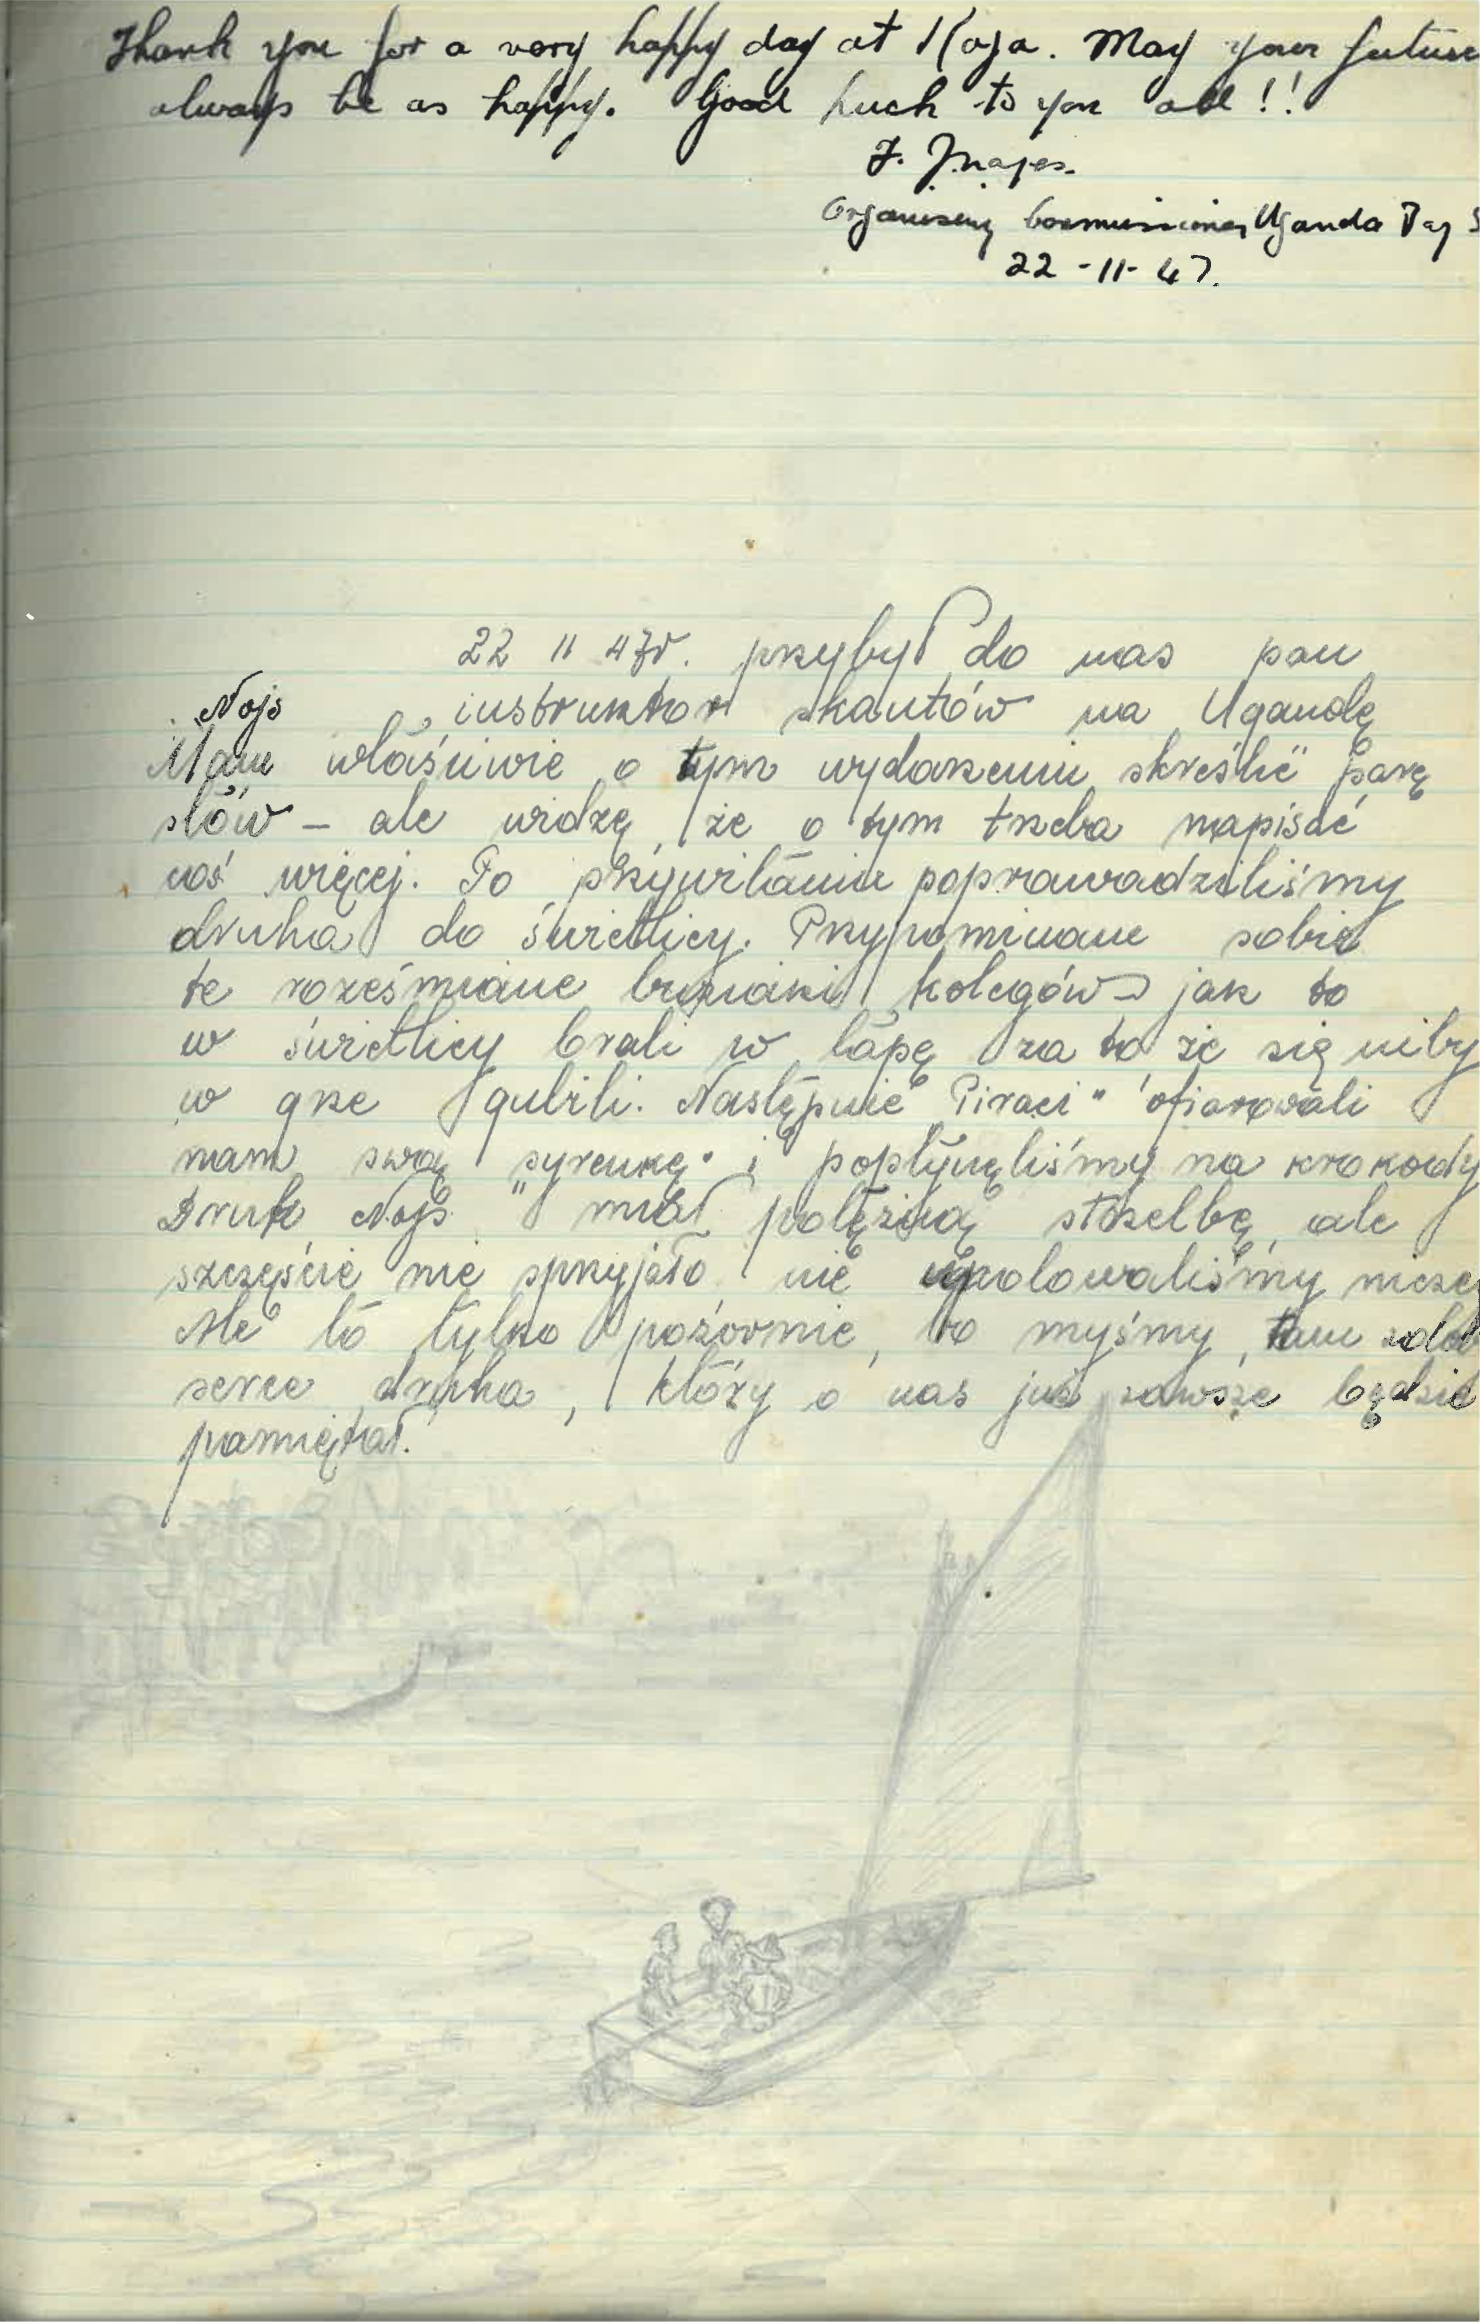 Thank you for a very happy day at Koja. May your future
always be as happy. Good Luck to you all!!
Organising Commissioner, Uganda
22-11-47.
22 11 47r. przybył do nas pan
Nojs instruktor skautów na Ugandę
Mam właściwie o tym wydarzeniu skreślić parę
słów – ale widzę, że o tym trzeba napisać
coś więcej. Po przywitaniu poprowadziliśmy
druha do świetlicy. Przypominam sobie
te roześmiane buziaki kolegów jak to
w świetlicy brali w łapę za to że się niby
w grze gubili. Następnie "Piraci" ofiarowali
nam swą "syrenkę" i popłynęliśmy na krokody
Druh Nojs miał potężną strzelbę, ale
szczęście nie sprzyjało nie upolowaliśmy nicze
Ale to tylko pozornie, bo myśmy tam zdob
serce druha, który o nas już zawsze będzie
pamiętał.